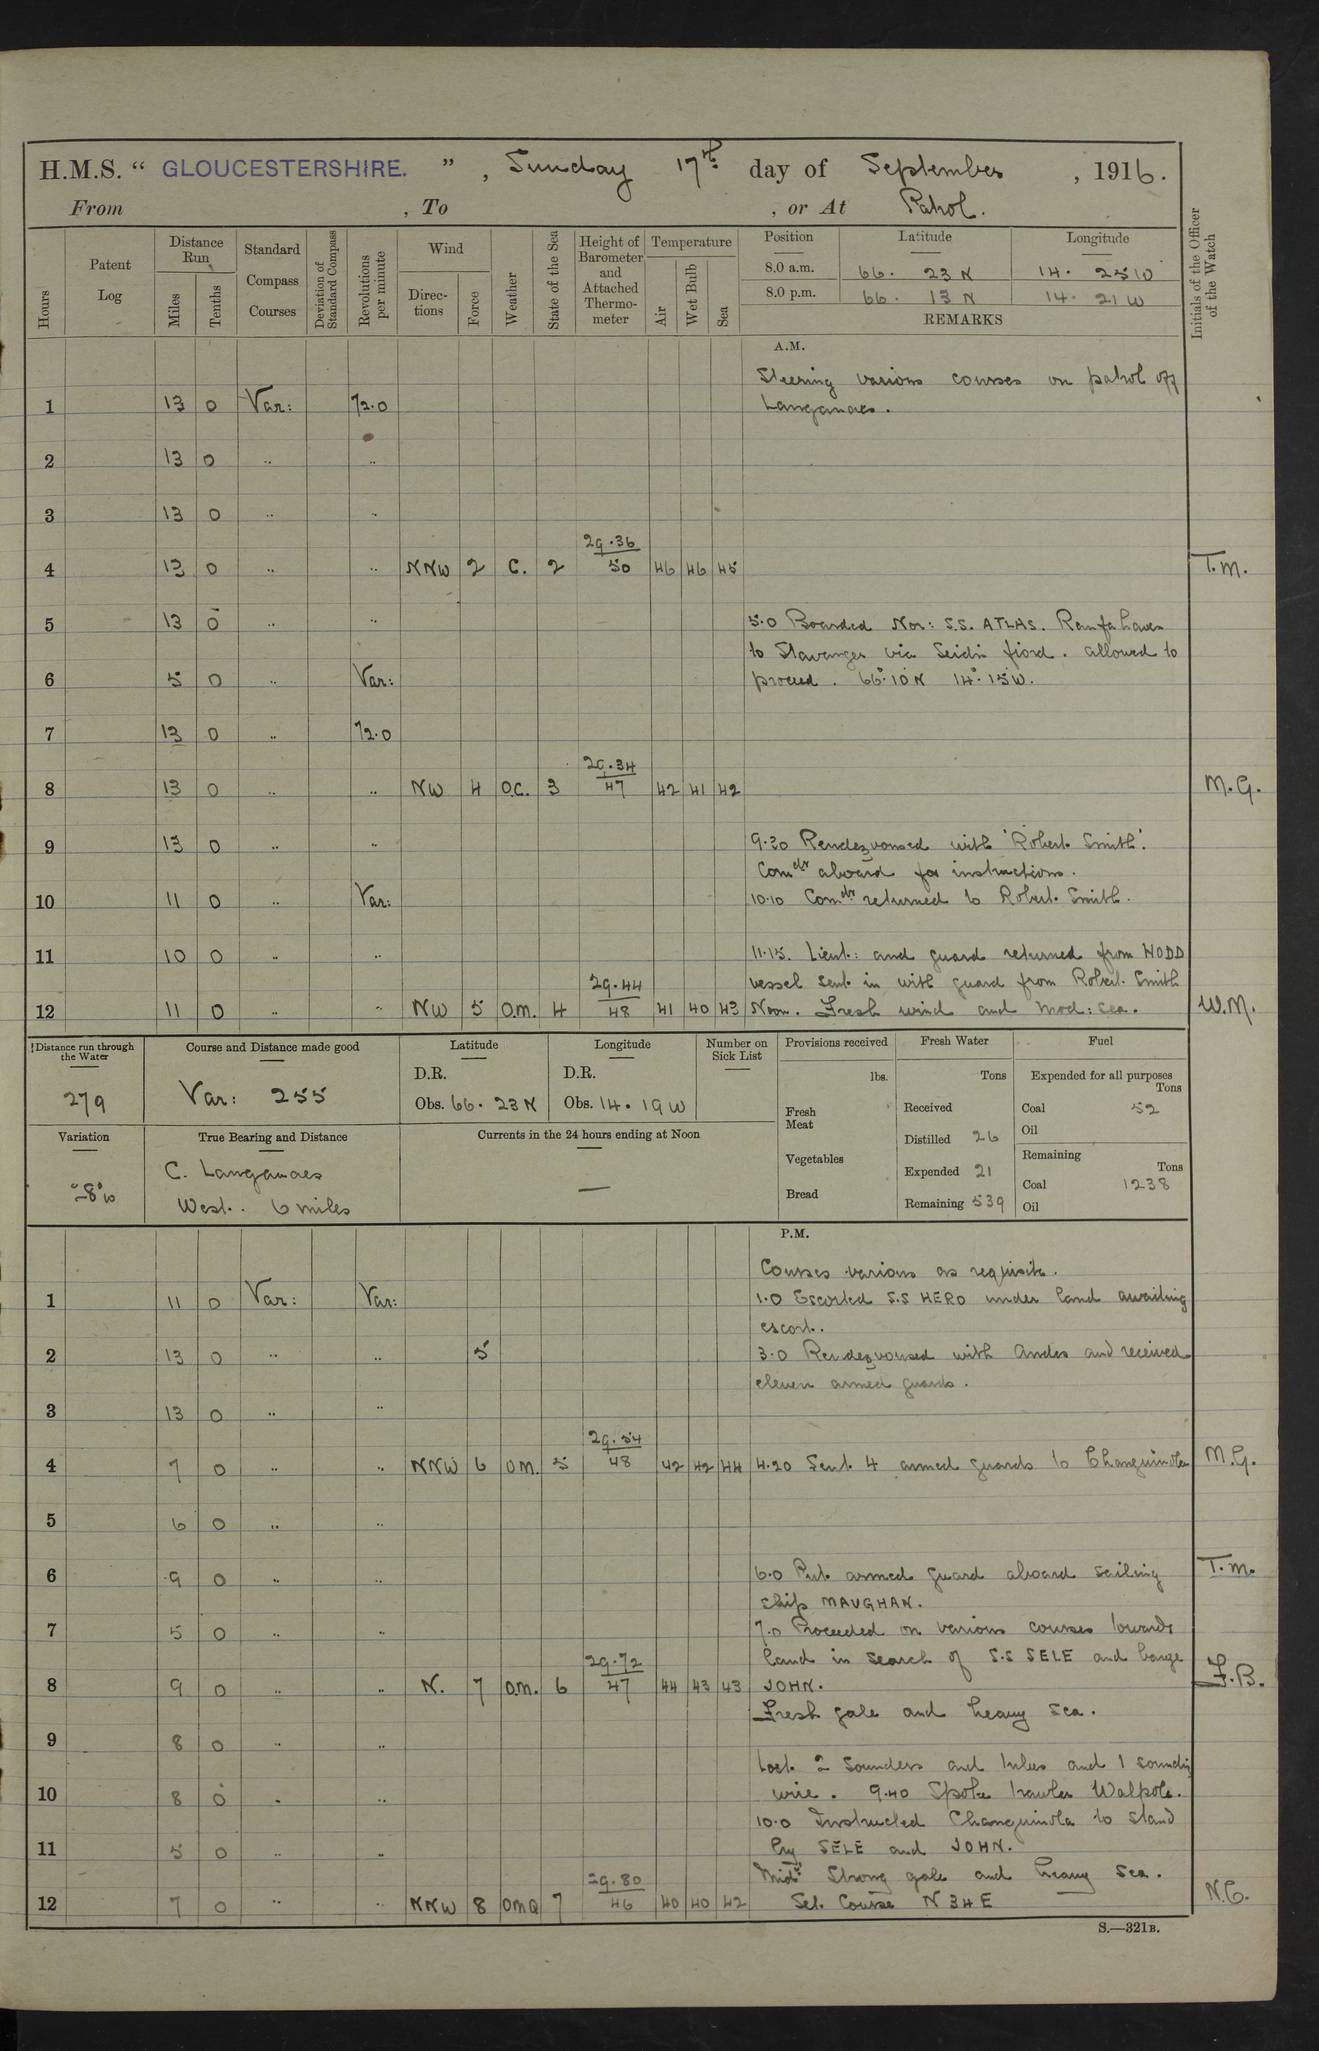 H.M.S. " GLOUCESTERSHIRE. " , Sunday 17th day of September , 1916.
From , To , or At Patrol.
Hours
Patent Log
Distance Run
Miles
Tenths
Standard Compass Courses
Deviation of Standard Compass
Revolutions per minute
Wind
Direc-tions
Force
Weather
State of the Sea
Height of Barometer and Attached Thermo-meter
Temperature
Air
Wet Bulb
Sea
Position Latitude Longitude
8.0 a.m. 66. 23 N 14.
8.0 p.m. 66. 13 N 14. 21 W
REMARKS
Initials of the Officer of the Watch
A.M.
Steering various courses on patrol off
1 13 0 Var: 72.0 Langanaes.
2 13 0 .. ..
3 13 0 .. ..
29.36
4 13 0 .. .. NNW 2 C. 2 50 46 46 45 T.M.
5 13 0 .. .. 5.0 Boarded Nor: S.S. ATLAS.
to Stavanger via Seidis fiord. allowed to
6 5 0 .. Var: proceed. 66° 10 N 14° 15 W.
7 13 0 .. 72.0
29.34
8 13 0 .. .. NW 4 O.C. 3 47 42 41 42 M.G.
9 13 0 .. .. 9.30 Rendezvoused with 'Robert Smith'.
Comdr aboard for instructions.
10 11 0 .. Var: 10.10 Comdr returned to Robert Smith.
11 10 0 .. .. 11.15. Lieut: and guard returned from HODD
29.44 vessel sent in with guard from Robert Smith
12 11 0 .. .. NW 5 O.M. 4 48 41 40 43 Noon. Fresh wind and mod: sea. W.M.
Distance run through the Water
279
Course and Distance made good
Var: 255
Latitude
D.R.
Obs. 66. 23 N
Longitude
D.R.
Obs. 14. 19 W
Number on Sick List
Provisions received
lbs.
Fresh Meat
Vegetables
Bread
Fresh Water
Tons
Received
Distilled 26
Expended 21
Remaining 539
Fuel
Expended for all purposes
Tons
Coal 52
Oil
Remaining
Tons
Coal 1238
Oil
Variation
True Bearing and Distance
C. Langanaes
West. 6 miles
Currents in the 24 hours ending at Noon
—
P.M.
Courses various as requisite.
1 11 0 Var: Var: 1.0 Escorted S.S HERO under land awaiting
escort.
2 13 0 .. .. 5 3.0 Rendezvoused with Andes and received
eleven armed guards.
3 13 0 .. ..
29.54
4 7 0 .. .. NNW 6 O.M. 5 48 42 42 44 4.20 Sent 4 armed guards to Changuinola M.G.
5 6 0 .. ..
6 9 0 .. .. 6.0 Put armed guard aboard sailing T.M.
ship MAUGHAN.
7 5 0 .. .. 7.0 Proceeded on various courses towards
29.72 land in search of S.S SELE and barge
8 9 0 .. .. N. 7 O.M. 6 47 44 43 43 JOHN. F.B.
Fresh gale and heavy sea.
9 8 0 .. ..
Lost 2 sounders and tubes and 1 sounding
10 8 0 .. .. wire. 9.40 Spoke trawler Walpole.
10.0 Instructed Changuinola to stand
11 5 0 .. .. by SELE and JOHN.
29.80 Midt Strong gale and heavy sea.
12 7 0 .. .. NNW 8 OMQ 7 46 40 40 42 Set Course N 34 E N.C.
S.—321B.